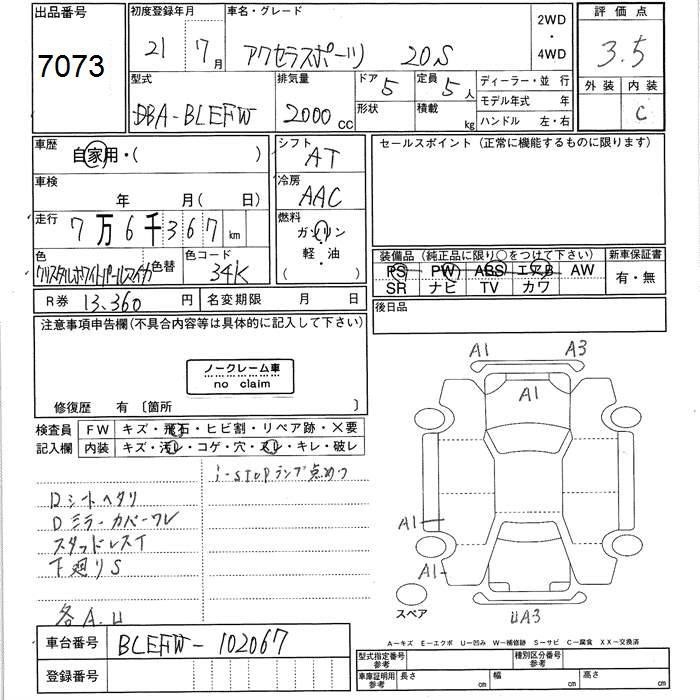 出品番号
7073
初度登録年月
21 7月
車名・グレード
アクセラスポーツ 20S
2WD
・
4WD
評価点
3.5
外装 内装
C
型式
DBA-BLEFW
排気量
2000cc
ドア 5
形状
定員 5人
積載 kg
ディーラー・並行
モデル年式 年
ハンドル 左・右
車歴
自家用・( )
シフト
AT
車検
年 月( 日)
冷房
AAC
走行
7万6千367km
燃料
ガソリン
軽・油
( )
色
クリスタルホワイトパールマイカ
色替
色コード
34K
R券 13,360円
名変期限 月 日
セールスポイント(正常に機能するものに限ります)
装備品(純正品に限り○をつけて下さい)
PS PW ABS エアB AW
SR ナビ TV カワ
新車保証書
有・無
後日品
注意事項申告欄(不具合内容等は具体的に記入して下さい)
ノークレーム車
no claim
修復歴 有〔箇所 〕
検査員
記入欄
FW キズ・飛石・ヒビ割・リペア跡・×要
内装 キズ・汚レ・コゲ・穴・スレ・キレ・破レ
i-STOPランプ点めつ
Dシートヘタリ
Dミラーカバーワレ
スタッドレスT
下廻りS
各A.U
A1
A3
A1
A1
A1
UA3
スペア
A-キズ E-エクボ U-凹み W-補修跡 S-サビ C-腐食 XX-交換済
車台番号 BLEFW-102067
登録番号
型式指定番号
参考
種別区分番号
参考
車庫証明用
参考
長さ cm 幅 cm 高さ cm